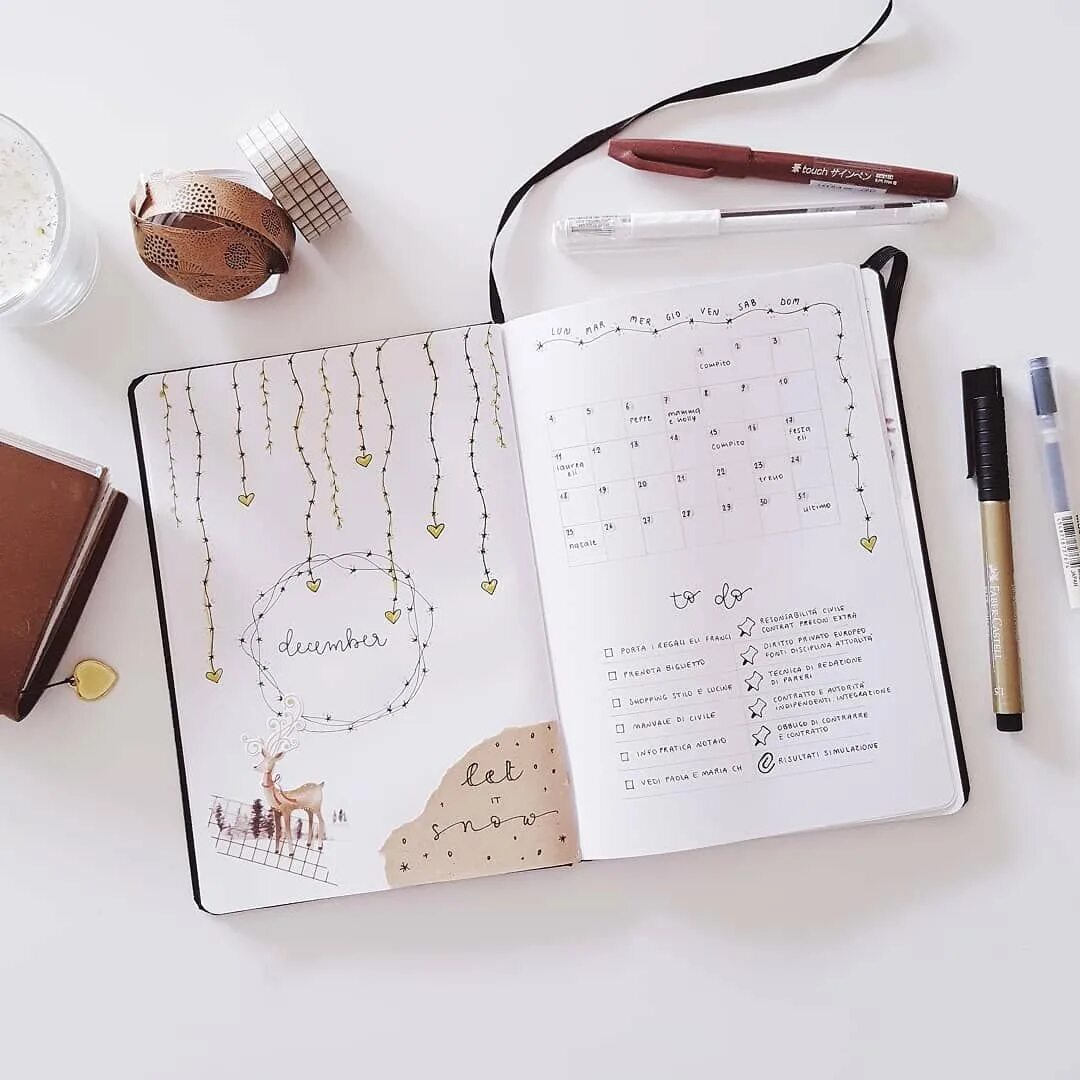 touch サインペン
LUN MAR MER GIO VEN SAB DOM
1 2 3
compito
4 5 6 7 8 9 10
peppe mamma e nolly
11 12 13 14 15 16 17
laurea eli compito festa eli
18 19 20 21 22 23 24
treno
25 26 27 28 29 30 31
natale ultimo
december
let
IT
snow
to do
PORTA I REGALI ELI FRANCI
PRENOTA BIGLIETTO
SHOPPING STILO E LUCINE
MANUALE DI CIVILE
INFO PRATICA NOTAIO
VEDI PAOLA E MARIA CH
RESONSABILITÀ CIVILE
CONTRAT. PRECON. EXTRA
DIRITTO PRIVATO EUROPEO
FONTI DISCIPLINA ATTUALITÀ
TECNICA DI REDAZIONE
DI PARERI
CONTRATTO E AUTORITÀ
INDIPENDENTI. INTEGRAZIONE
OBBLIGO DI CONTRARRE
E CONTRATTO
RISULTATI SIMULAZIONE
FABER-CASTELL
1.5